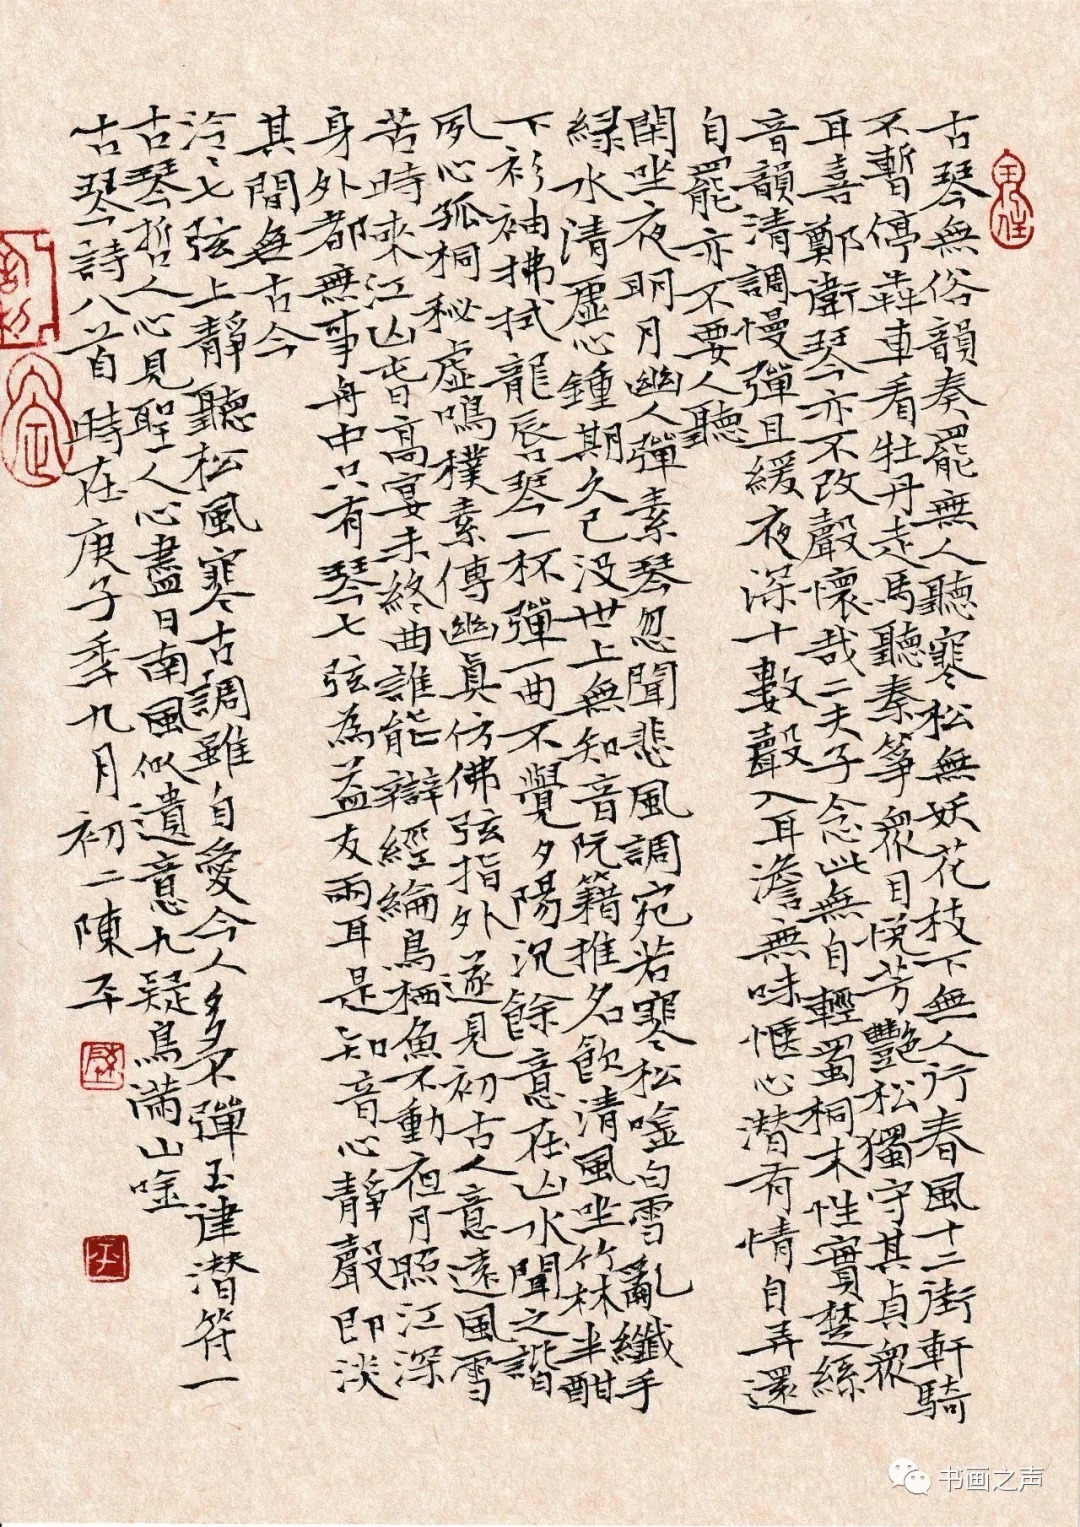 古琴無俗韻奏罷無人聽寒松無妖花枝下無人行春風十二街軒騎
不暫停犇車看牡丹走馬聽秦筝眾目悅芳艷松獨守其貞眾
耳喜鄭衛琴亦不改聲懷哉二夫子念此無自輕蜀桐木性實楚絲
音韻清調慢彈且緩夜深十數聲入耳澹無味愜心潜有情自弄還
自罷亦不要人聽
閑坐夜明月幽人彈素琴忽聞悲風調宛若寒松唫白雪亂纖手
緑水清虛心鍾期久已没世上無知音阮籍推名飲清風坐竹林半酣
下衫袖拂拭龍唇琴一杯彈一曲不覺夕陽沉餘意在山水聞之諧
夙心孤桐秘虛鳴樸素傳幽真仿佛弦指外遂見初古人意遠風雪
苦時來江山春高宴未終曲誰能辯經綸鳥栖魚不動夜月照江深
身外都無事舟中只有琴七弦為益友兩耳是知音心靜聲即淡
其間無古今
泠々七弦上靜聽松風寒古調雖自愛今人多不彈玉律潜符一
古琴哲人心見聖人心盡日南風似遺意九疑鳥满山唫
古琴詩八首 時在庚子季九月初二陳平
书画之声